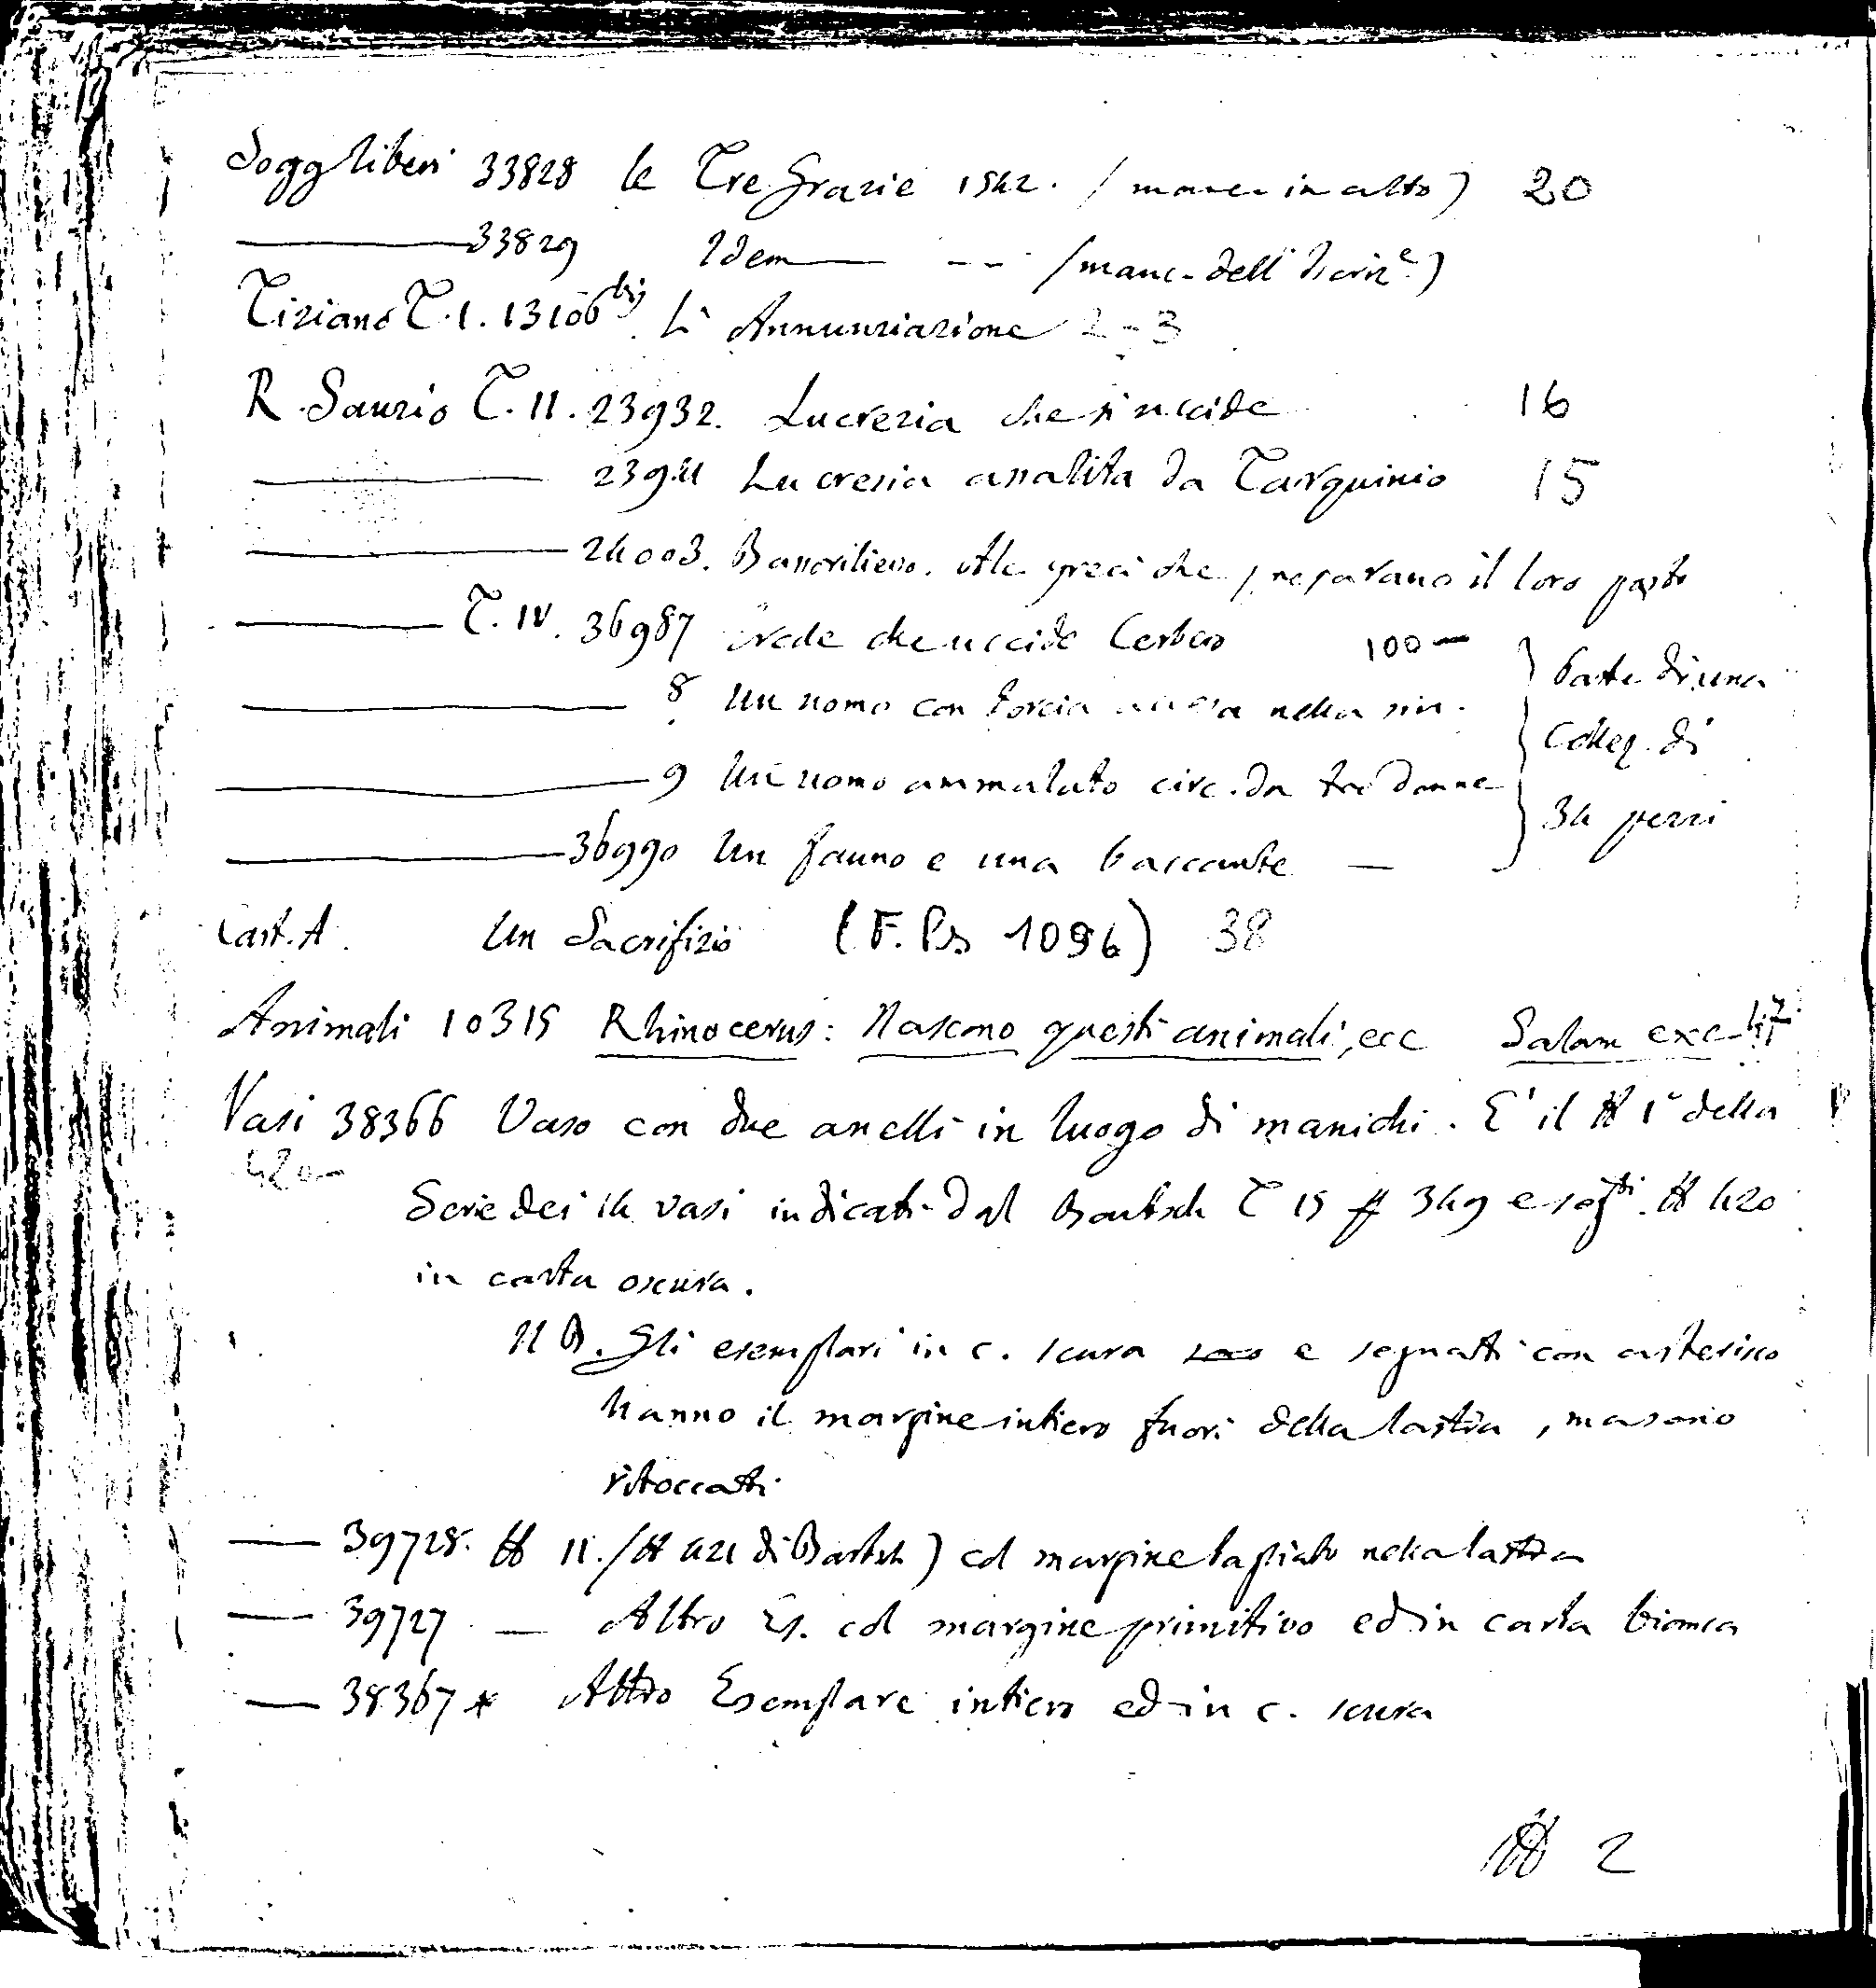 Sogg liberi 33828 le Tre Grazie 1542. (manca in alto) 20
33829 Idem -- (manc. dell' Iscriz.e)
Tiziano T.I. 13106 bis L'Annunziazione 2-3
R. Sanzio T.II. 23932. Lucrezia che si uccide 16
Lucrezia assalita da Tarquinio 15
24003. Bassorilievo. greci che preparano il loro pasto
T. IV. 36987 che uccide Cerbero 100 —
8 Un uomo con torcia accesa nella sin.
9 Un uomo ammalato circ. da tre donne
36990 Un fauno e una baccante —
Parte di una
Collez. di
34 pezzi
Cart. A. Un Sacrifizio (F. 1096) 38
Animali 10315 Rhinocerus: Nascono questi animali, ecc Salam exc.
Vasi 38366 Vaso con due anelli in luogo di manichi. E' il N 1° della
420—
Serie dei 14 vasi indicati dal Bartsch T 15 p 349 e seg.ti N 420
in carta oscura.
NB. Gli esemplari in c. scura e segnati con asterisco
hanno il margine intiero fuori della lastra, ma sono
ritoccati
— 39728. N 11. (N 421 di Bartsch) col margine tagliato nella lastra
— 39727 — Altro Es. col margine primitivo ed in carta bianca
— 38367 * Altro Esemplare intiero ed in c. scura
N 2